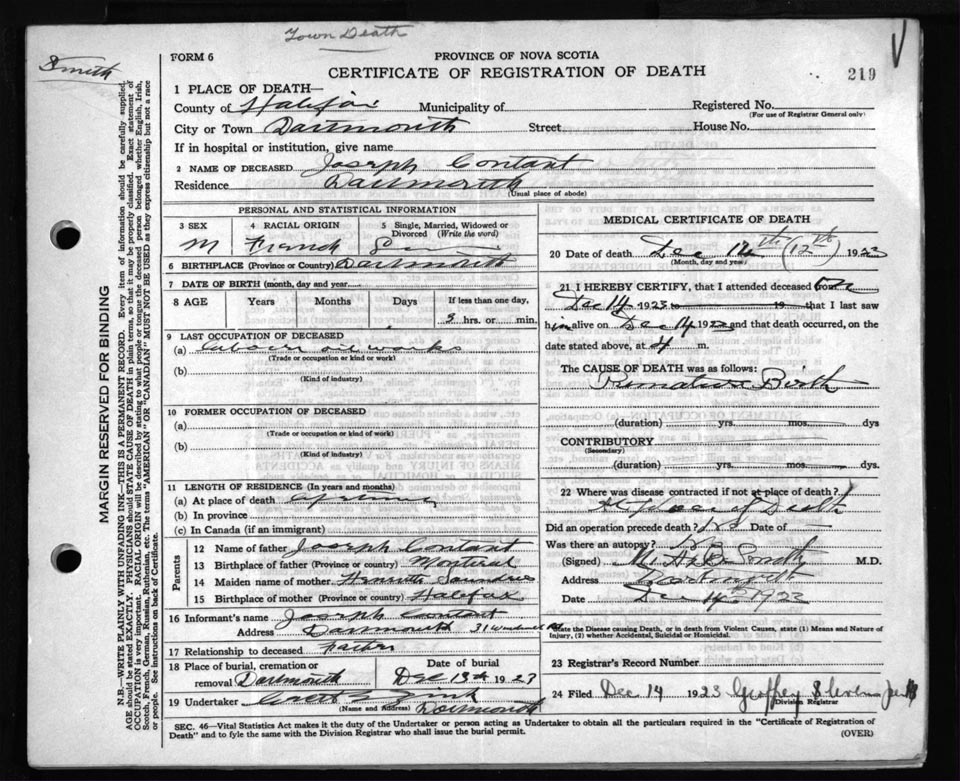 Town Death
Smith
FORM 6
PROVINCE OF NOVA SCOTIA
CERTIFICATE OF REGISTRATION OF DEATH
219
1 PLACE OF DEATH—
County of Halifax Municipality of Registered No.
(For use of Registrar General only)
City or Town Dartmouth Street House No.
If in hospital or institution, give name
2 NAME OF DECEASED Joseph Contant
Residence Dartmouth
(Usual place of abode)
PERSONAL AND STATISTICAL INFORMATION
3 SEX 4 RACIAL ORIGIN 5 Single, Married, Widowed or Divorced (Write the word)
M French
6 BIRTHPLACE (Province or Country) Dartmouth
7 DATE OF BIRTH (month, day and year)
8 AGE Years Months Days If less than one day,
5 hrs. or min.
9 LAST OCCUPATION OF DECEASED
(a) works
(Trade or occupation or kind or work)
(b)
(Kind of industry)
10 FORMER OCCUPATION OF DECEASED
(a)
(Trade or occupation or kind of work)
(b)
(Kind of industry)
11 LENGTH OF RESIDENCE (In years and months)
(a) At place of death
(b) In province
(c) In Canada (if an immigrant)
Parents
12 Name of father Joseph Contant
13 Birthplace of father (Province or Country) Montreal
14 Maiden name of mother
15 Birthplace of mother (Province or country) Halifax
16 Informant's name Joseph Contant
Address Dartmouth
17 Relationship to deceased Father
18 Place of burial, cremation or removal Dartmouth
Date of burial
Dec 13th 1923
19 Undertaker
(Name and Address) Dartmouth
MEDICAL CERTIFICATE OF DEATH
20 Date of death Dec (12th) 1923
(Month, day and year)
21 I HEREBY CERTIFY, that I attended deceased from
Dec 14 1923 to 19 that I last saw
him alive on Dec 1923 and that death occurred, on
the date stated above, at 4 m.
The CAUSE OF DEATH was as follows:
Premature Birth
(duration) yrs. mos. dys
CONTRIBUTORY
(Secondary)
(duration) yrs. mos. dys.
22 Where was disease contracted if not at place of death?
At place of Death
Did an operation precede death? No Date of
Was there an autopsy? No
(Signed) Smith M.D.
Address Dartmouth
Date Dec 14 1923
State the Disease causing Death, or in death from Violent Causes, state (1) Means and Nature of
Injury, (2) whether Accidental, Suicidal or Homicidal.
23 Registrar's Record Number
24 Filed Dec 14 1923 Geoffrey Stevens
Division Registrar
SEC. 46—Vital Statistics Act makes it the duty of the Undertaker or person acting as Undertaker to obtain all the particulars required in the "Certificate of Registration of
Death" and to fyle the same with the Division Registrar who shall issue the burial permit.
(OVER)
MARGIN RESERVED FOR BINDING
N.B.—WRITE PLAINLY WITH UNFADING INK—THIS IS A PERMANENT RECORD. Every item of information should be carefully supplied.
AGE should be stated EXACTLY. PHYSICIANS should STATE CAUSE OF DEATH in plain terms, so that it may be properly classified. Exact statement of
OCCUPATION is very important. RACIAL ORIGIN will be described by stating to what people or tongue the deceased person belonged whether English, Irish,
Scotch, French, German, Russian, Ruthenian, etc. The terms "AMERICAN" OR "CANADIAN" MUST NOT BE USED as they express citizenship but not a race
or people. See instructions on back of Certificate.